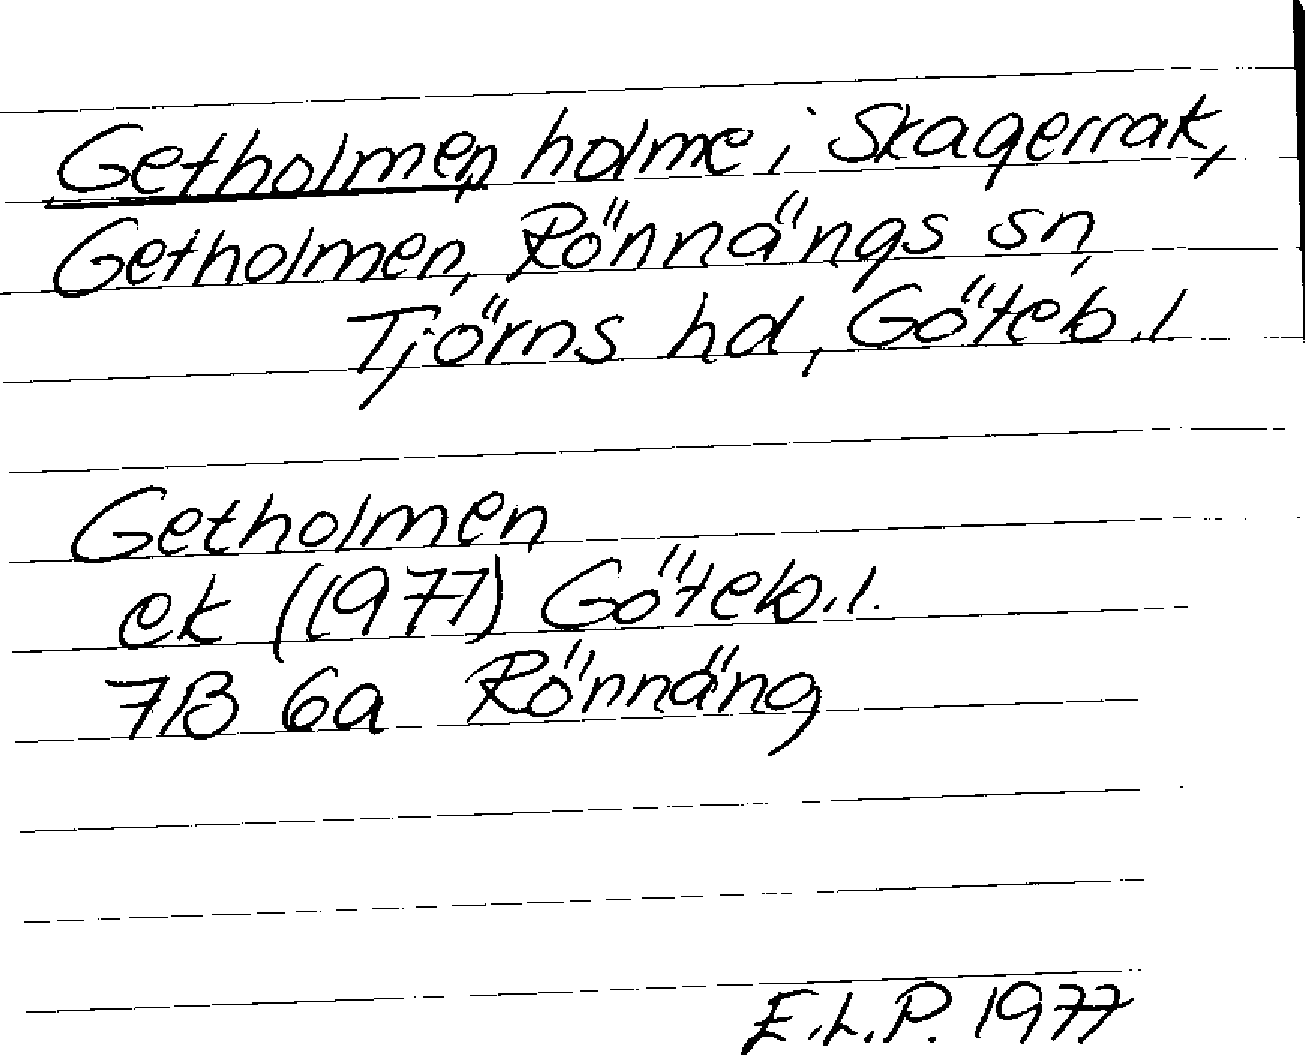 Getholmen, holme i Skagerrak,
Getholmen, Rönnängs sn,
Tjörns hd, Göteb. l
Getholmen
ek (1977) Göteb. l.
7B 6a Rönnäng
E.L.P. 1977